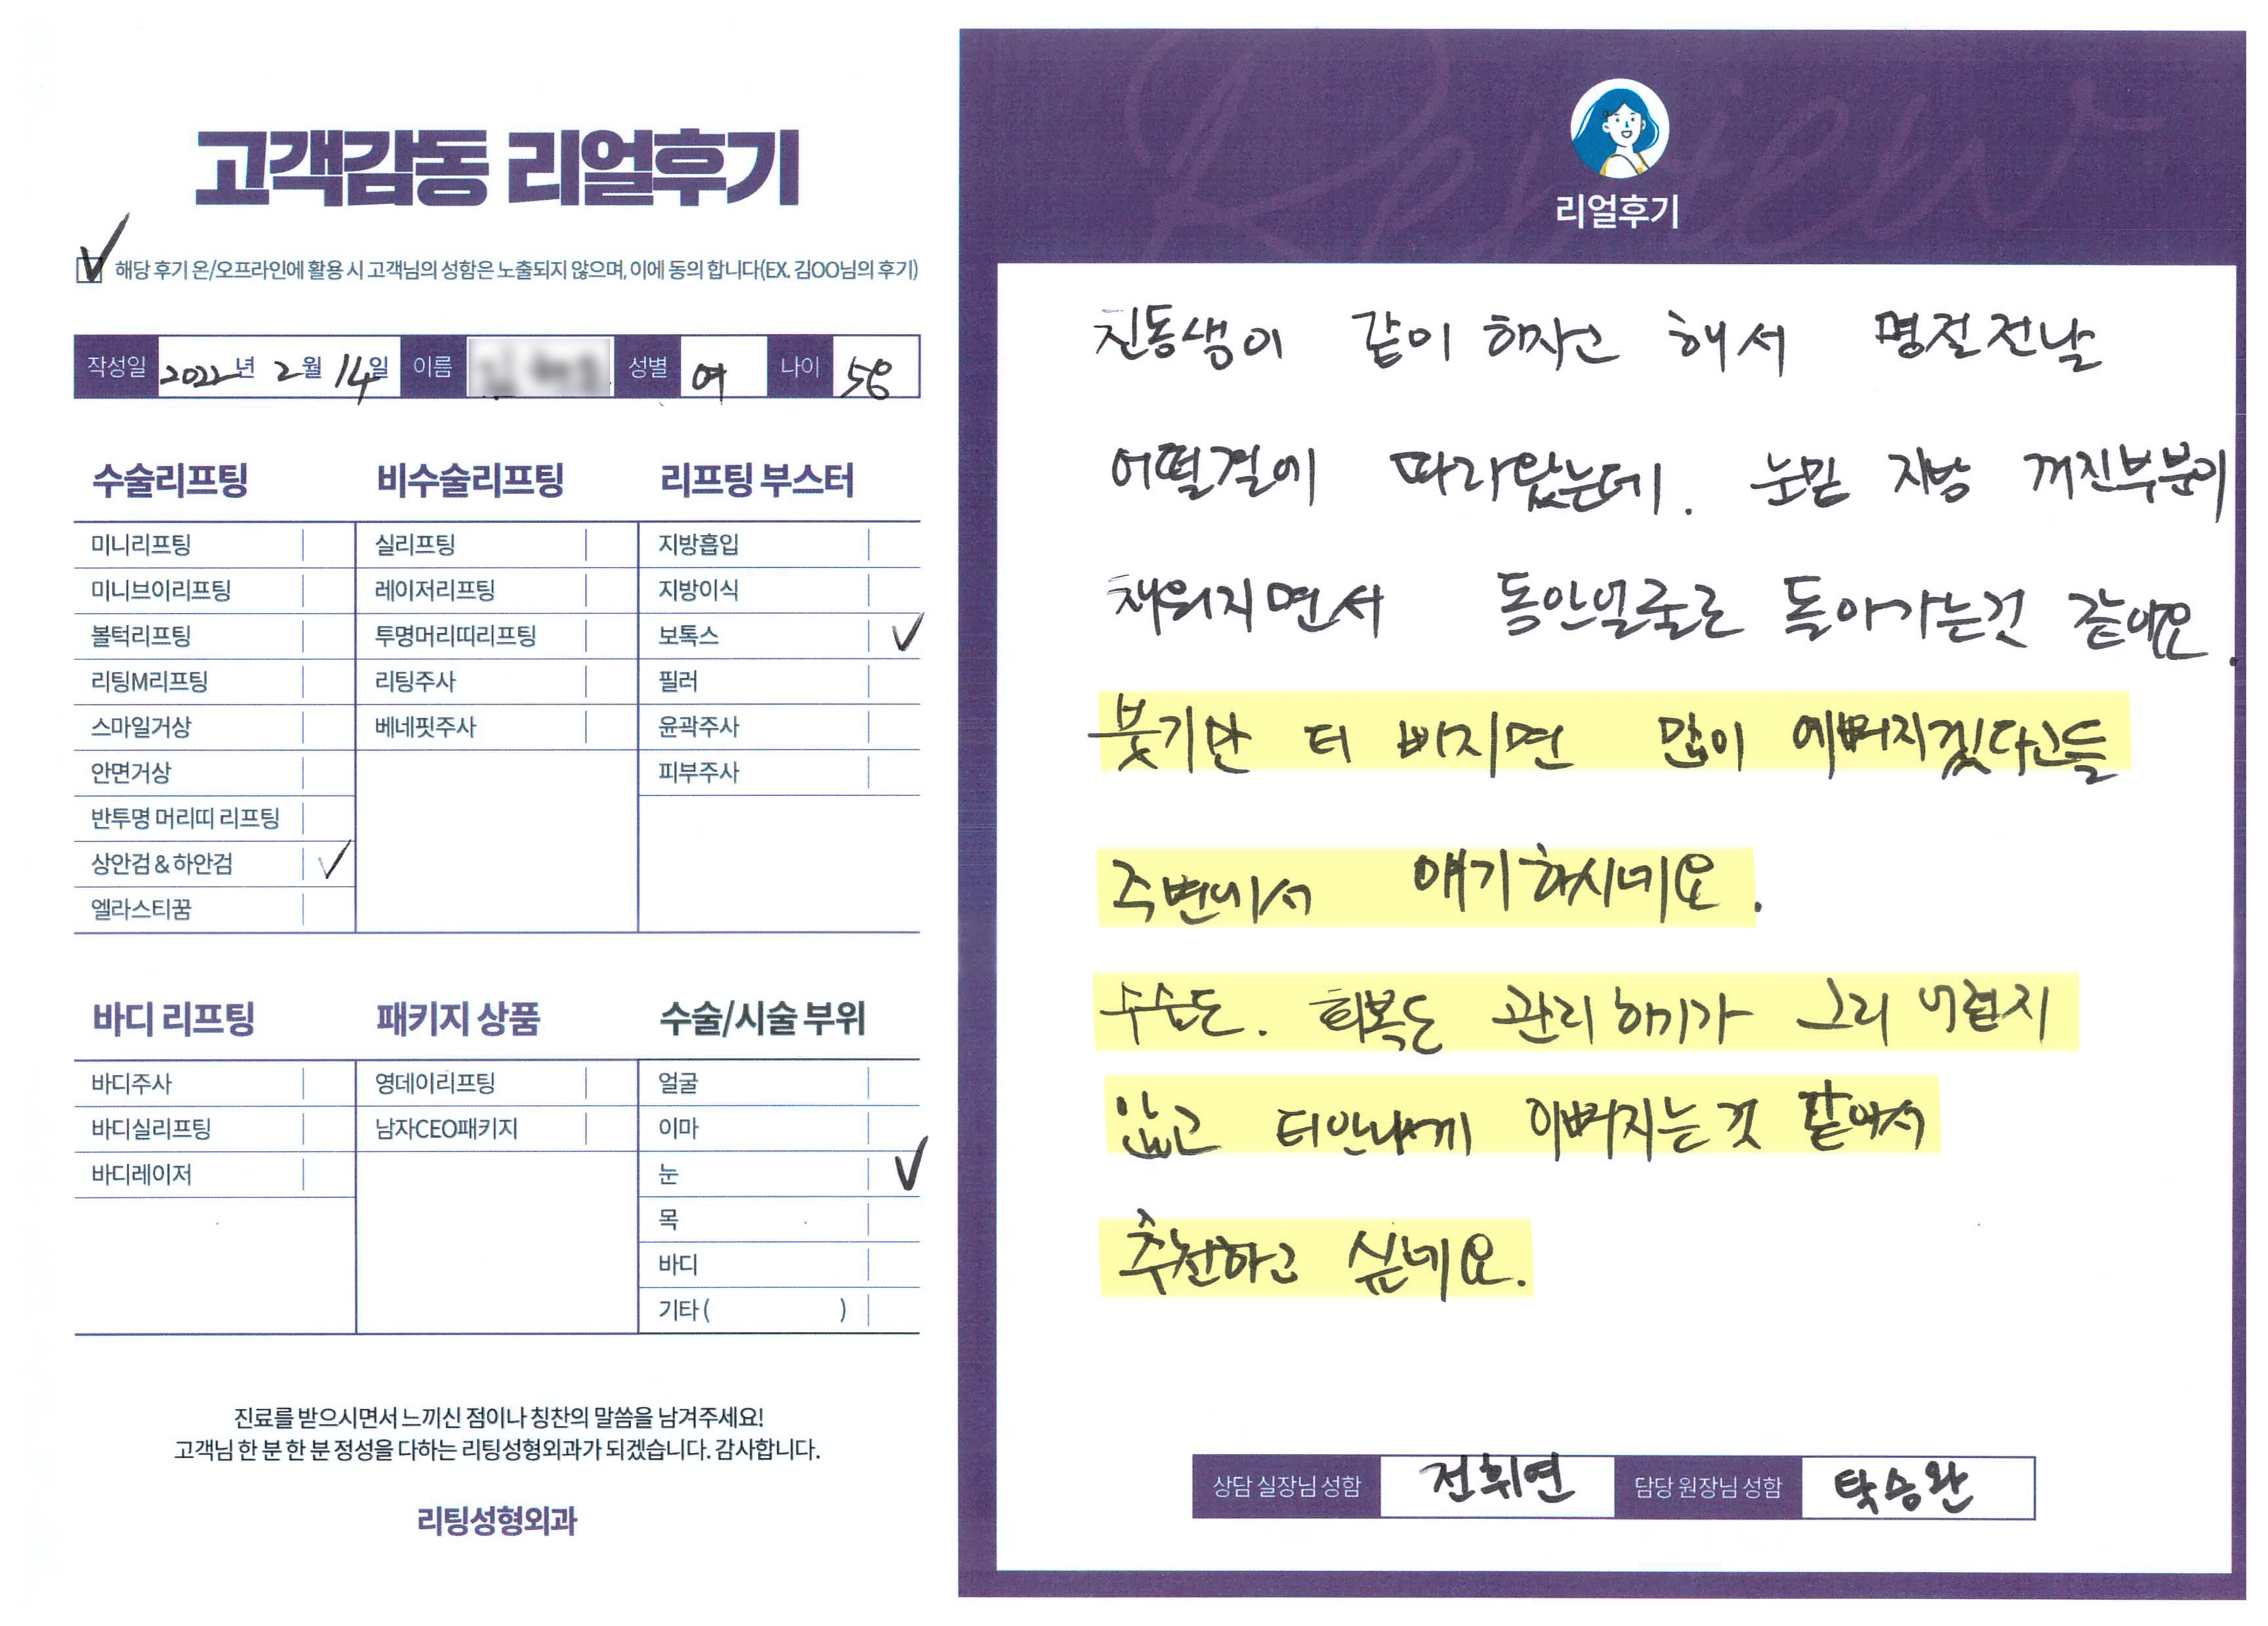 고객감동 리얼후기
해당 후기 온/오프라인에 활용 시 고객님의 성함은 노출되지 않으며, 이에 동의 합니다(EX. 김OO님의 후기)
작성일 2022년 2월 14일 이름 성별 여 나이 58
수술리프팅
미니리프팅
미니브이리프팅
볼턱리프팅
리팅M리프팅
스마일거상
안면거상
반투명 머리띠 리프팅
상안검 & 하안검
엘라스티꿈
비수술리프팅
실리프팅
레이저리프팅
투명머리띠리프팅
리팅주사
베네핏주사
리프팅 부스터
지방흡입
지방이식
보톡스
필러
윤곽주사
피부주사
바디 리프팅
바디주사
바디실리프팅
바디레이저
패키지 상품
영데이리프팅
남자CEO패키지
수술/시술 부위
얼굴
이마
눈
목
바디
기타 ( )
진료를 받으시면서 느끼신 점이나 칭찬의 말씀을 남겨주세요!
고객님 한 분 한 분 정성을 다하는 리팅성형외과가 되겠습니다. 감사합니다.
리팅성형외과
Review
리얼후기
친동생이 같이 하자고 해서 명절전날
어떨결에 따라왔는데. 눈밑 지방 꺼진부분이
채워지면서 동안얼굴로 돌아가는것 같아요.
붓기만 더 빠지면 많이 예뻐지겠다고들
주변에서 얘기하시네요.
수술도. 회복도 관리하기가 그리 어렵지
않고 티안나게 이뻐지는것 같아서
추천하고 싶네요.
상담 실장님 성함 전휘연 담당 원장님 성함 탁승완